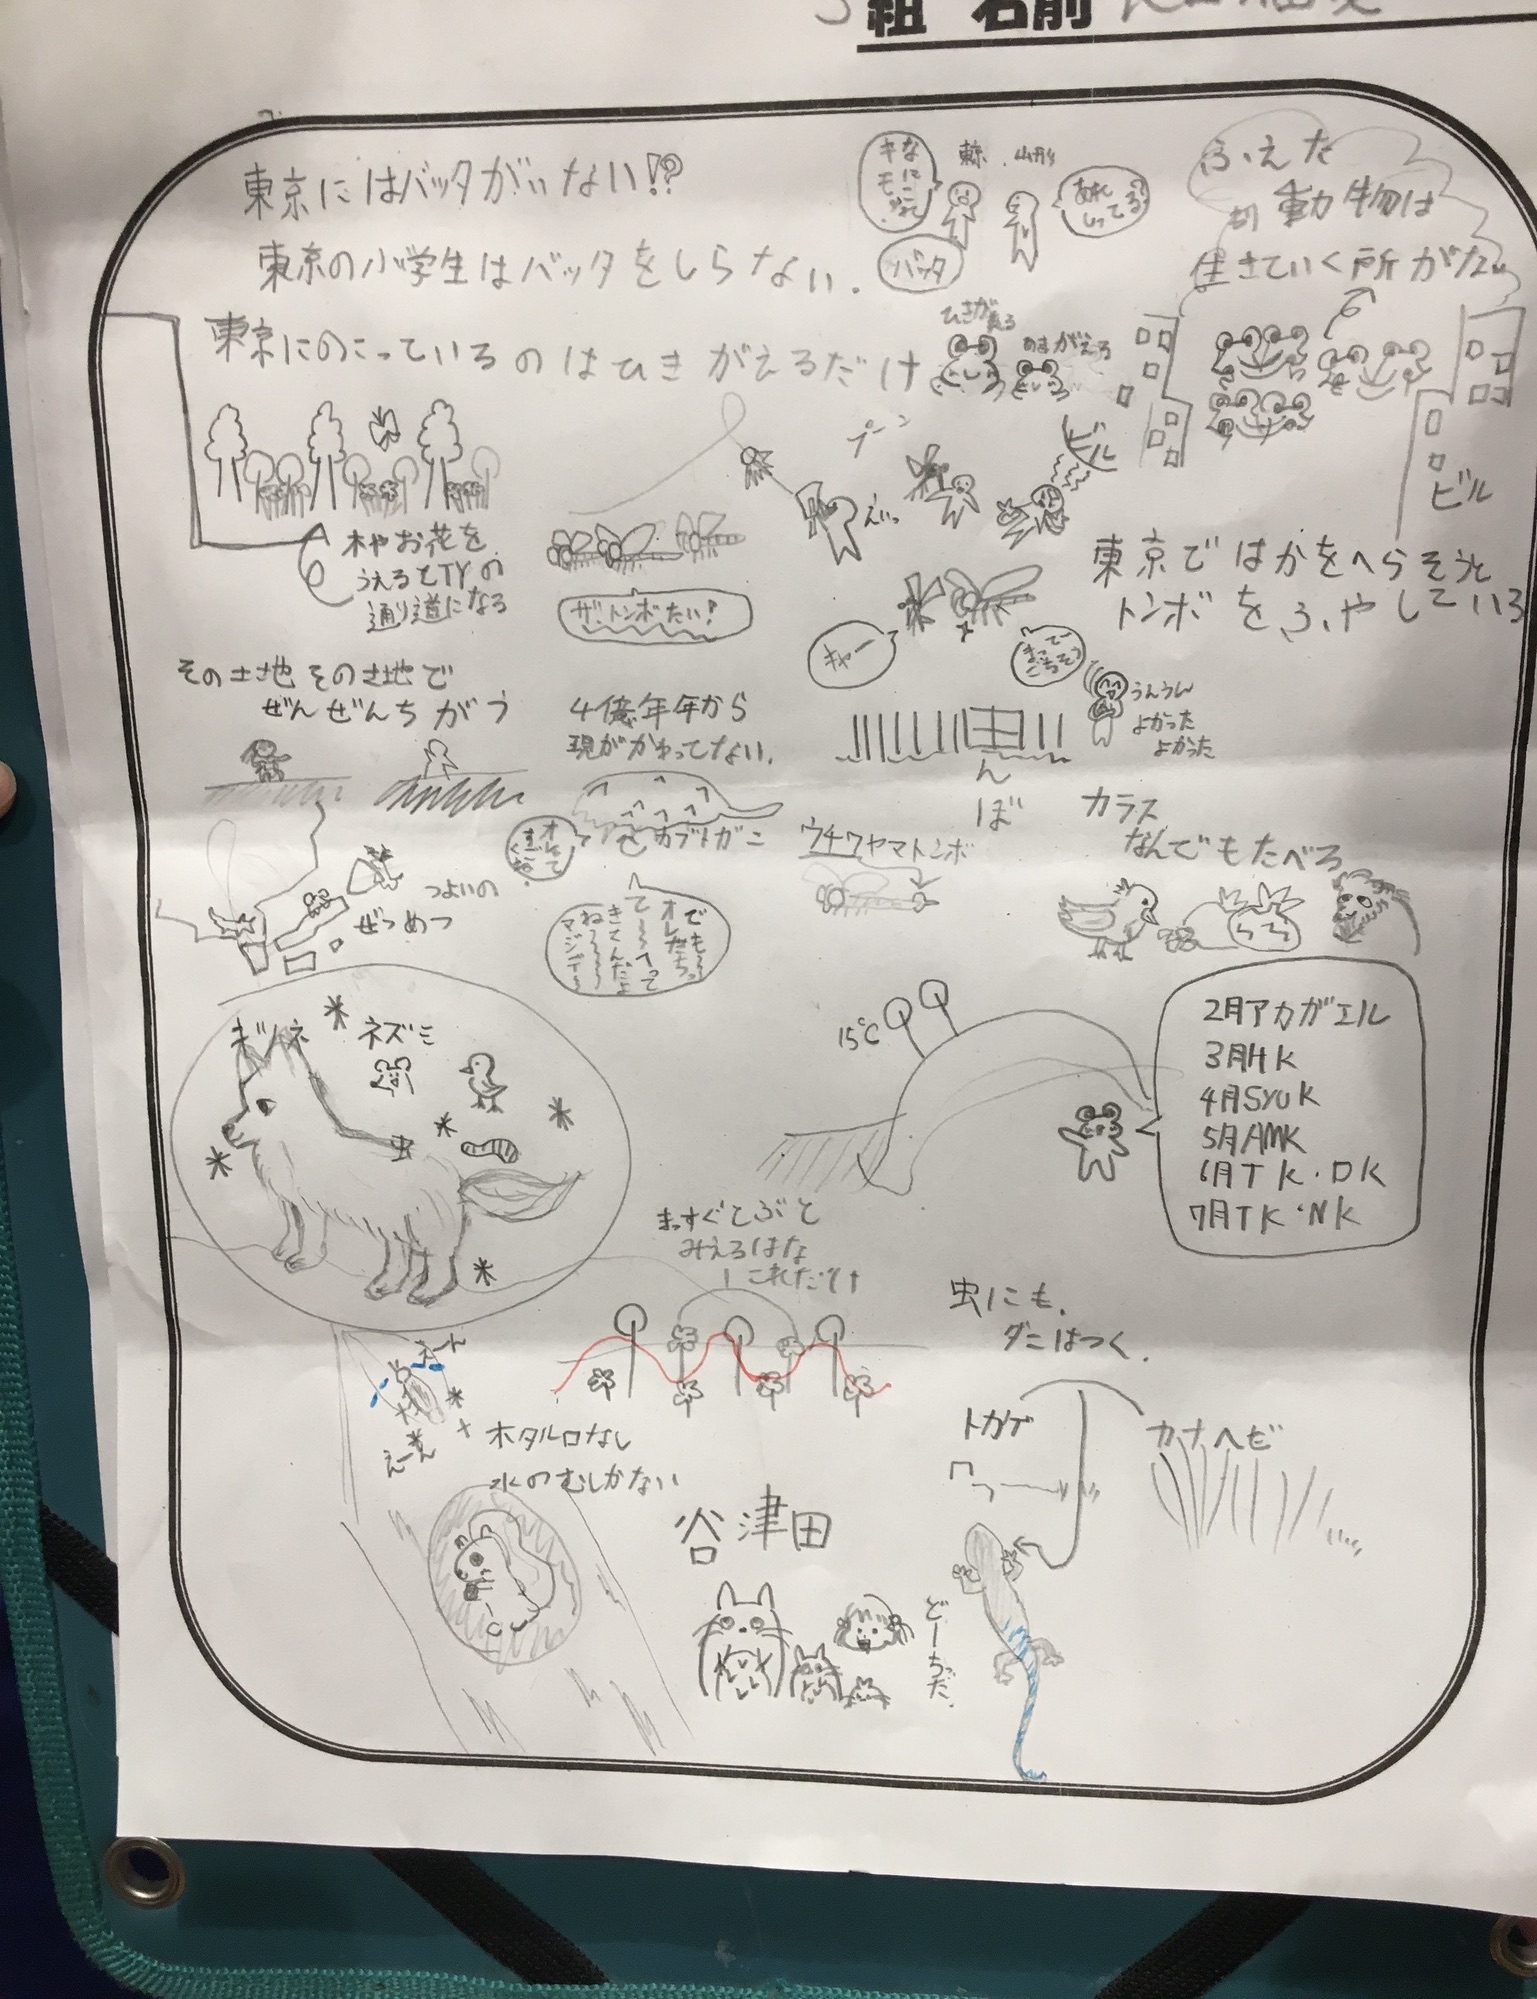 組 名前
東京にはバッタがいない!?
東京の小学生はバッタをしらない.
東京 山形
なにこれ
キモ
あれしってる?
バッタ
ふえた
動物は
生きていく所がない
東京にのこっているのはひきがえるだけ
ひきがえる
あまがえる
ビル
ビル
プーン
えいっ
木やお花を
うえるとTYの
通り道になる
ザ、トンボたい!
東京ではかをへらそうと
トンボをふやしている
キャー
まってー
ごちそう
うんうん
よかった
よかった
その土地その土地で
ぜんぜんちがう
4億年年から
現がかわってない.
カブトガニ
でも〜
オレたちって
て〜
きてんだよ
ね〜
マジで〜
田んぼ
ウチワヤマトンボ
カラス
なんでもたべる
つよいの
ぜつめつ
キツネ
ネズミ
虫
15℃
2月アカガエル
3月HK
4月SYUK
5月AMK
6月TK・DK
7月TK・NK
まっすぐとぶと
みえるはな
これだけ
虫にも.
ダニはつく.
えーん
えーん
ホタル口なし
水のむしかない
トカゲ
カナヘビ
谷津田
どーちだ.